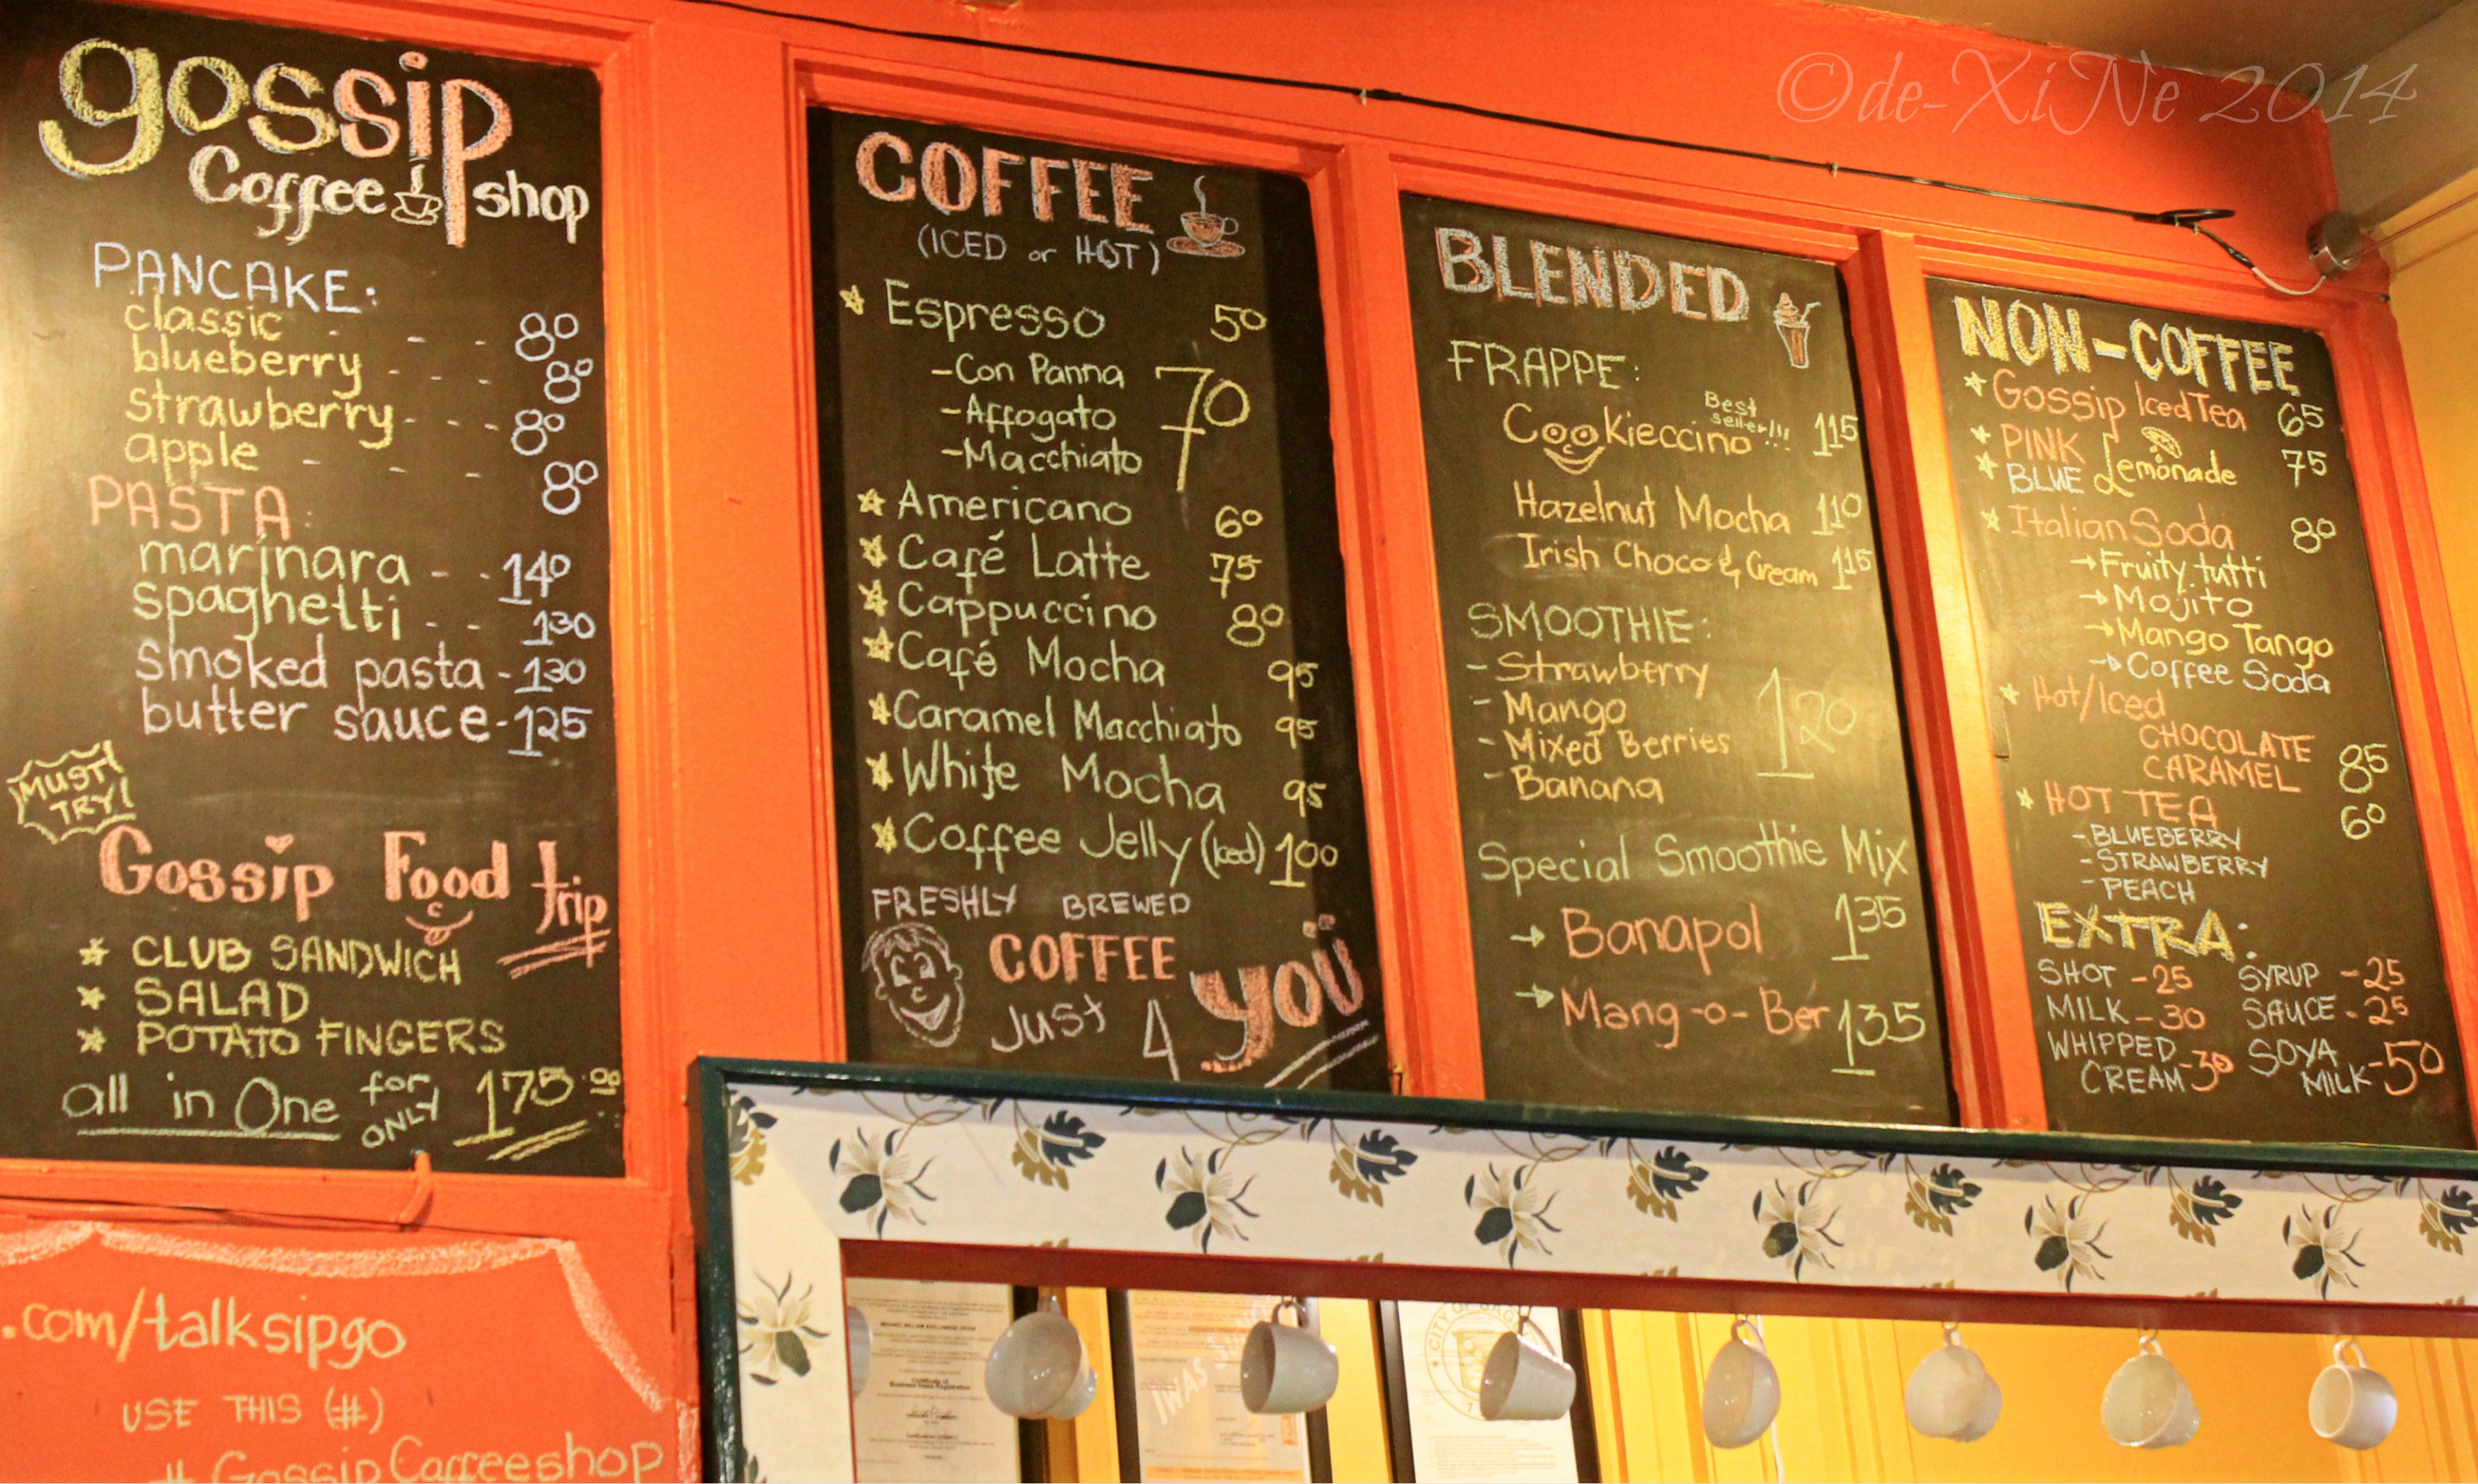 ©de-XiNe 2014
gossip
Coffee shop
PANCAKE:
classic - - - 80
blueberry - - - 80
strawberry - - - 80
apple - - - 80
PASTA:
marinara - - 140
spaghetti - - 130
smoked pasta - 130
butter sauce - 125
MUST
TRY!
Gossip Food trip
CLUB SANDWICH
SALAD
POTATO FINGERS
all in One for ONLY 175.00
.com/talksipgo
USE THIS (#)
# GossipCoffeeshop
COFFEE
(ICED or HOT)
Espresso 50
-Con Panna
-Affogato 70
-Macchiato
Americano 60
Café Latte 75
Cappuccino 80
Café Mocha 95
Caramel Macchiato 95
White Mocha 95
Coffee Jelly (Iced) 100
FRESHLY BREWED
COFFEE
Just 4 YOU
BLENDED
FRAPPE:
Best
seller!!!
Cookieccino 115
Hazelnut Mocha 110
Irish Choco & Cream 115
SMOOTHIE:
- Strawberry
- Mango 120
- Mixed Berries
- Banana
Special Smoothie Mix
→ Banapol 135
→ Mang-o-Ber 135
NON-COFFEE
Gossip Iced Tea 65
PINK
BLUE Lemonade 75
Italian Soda 80
→Fruity tutti
→Mojito
→Mango Tango
→Coffee Soda
Hot/Iced
CHOCOLATE
CARAMEL 85
HOT TEA 60
-BLUEBERRY
-STRAWBERRY
-PEACH
EXTRA:
SHOT -25 SYRUP -25
MILK -30 SAUCE -25
WHIPPED
CREAM -30
SOYA
MILK -50
Certificate of
Business Name Registration
CITY OF